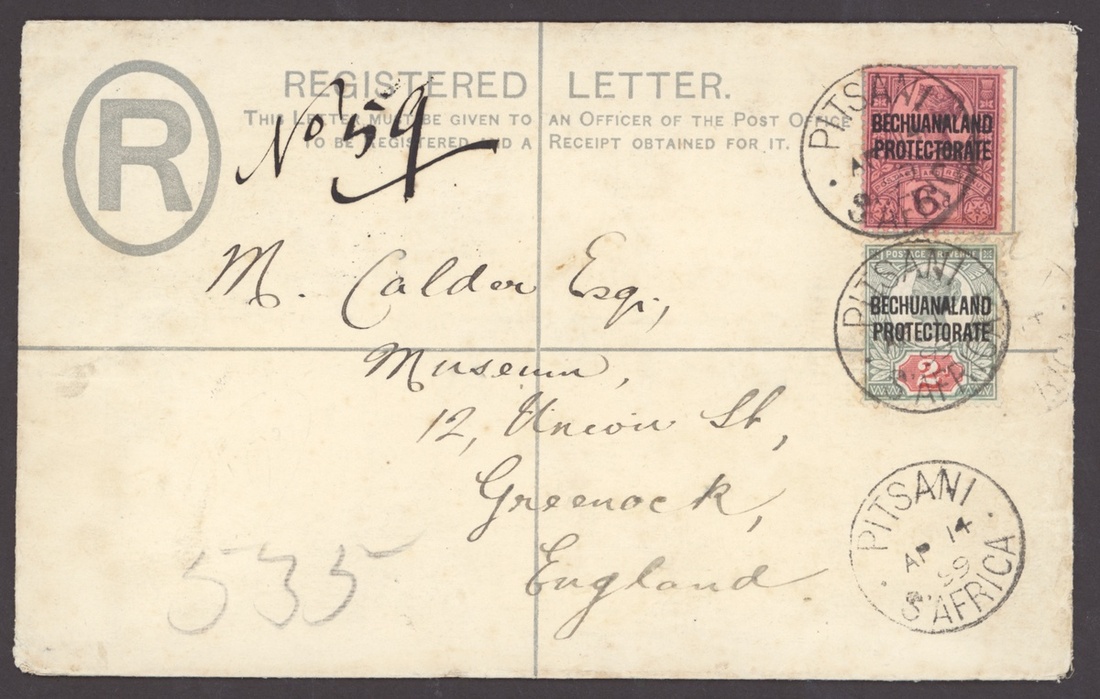 REGISTERED LETTER.
THIS LETTER MUST BE GIVEN TO AN OFFICER OF THE POST OFFICE
TO BE REGISTERED AND A RECEIPT OBTAINED FOR IT.
R
No 59
PITSANI
BECHUANALAND
PROTECTORATE
6
M. Calder Esqr.,
Museum,
12, Union St,
Greenock,
England.
PITSANI
POSTAGE & REVENUE
BECHUANALAND
PROTECTORATE
2
PITSANI
AP 14
99
S. AFRICA
535